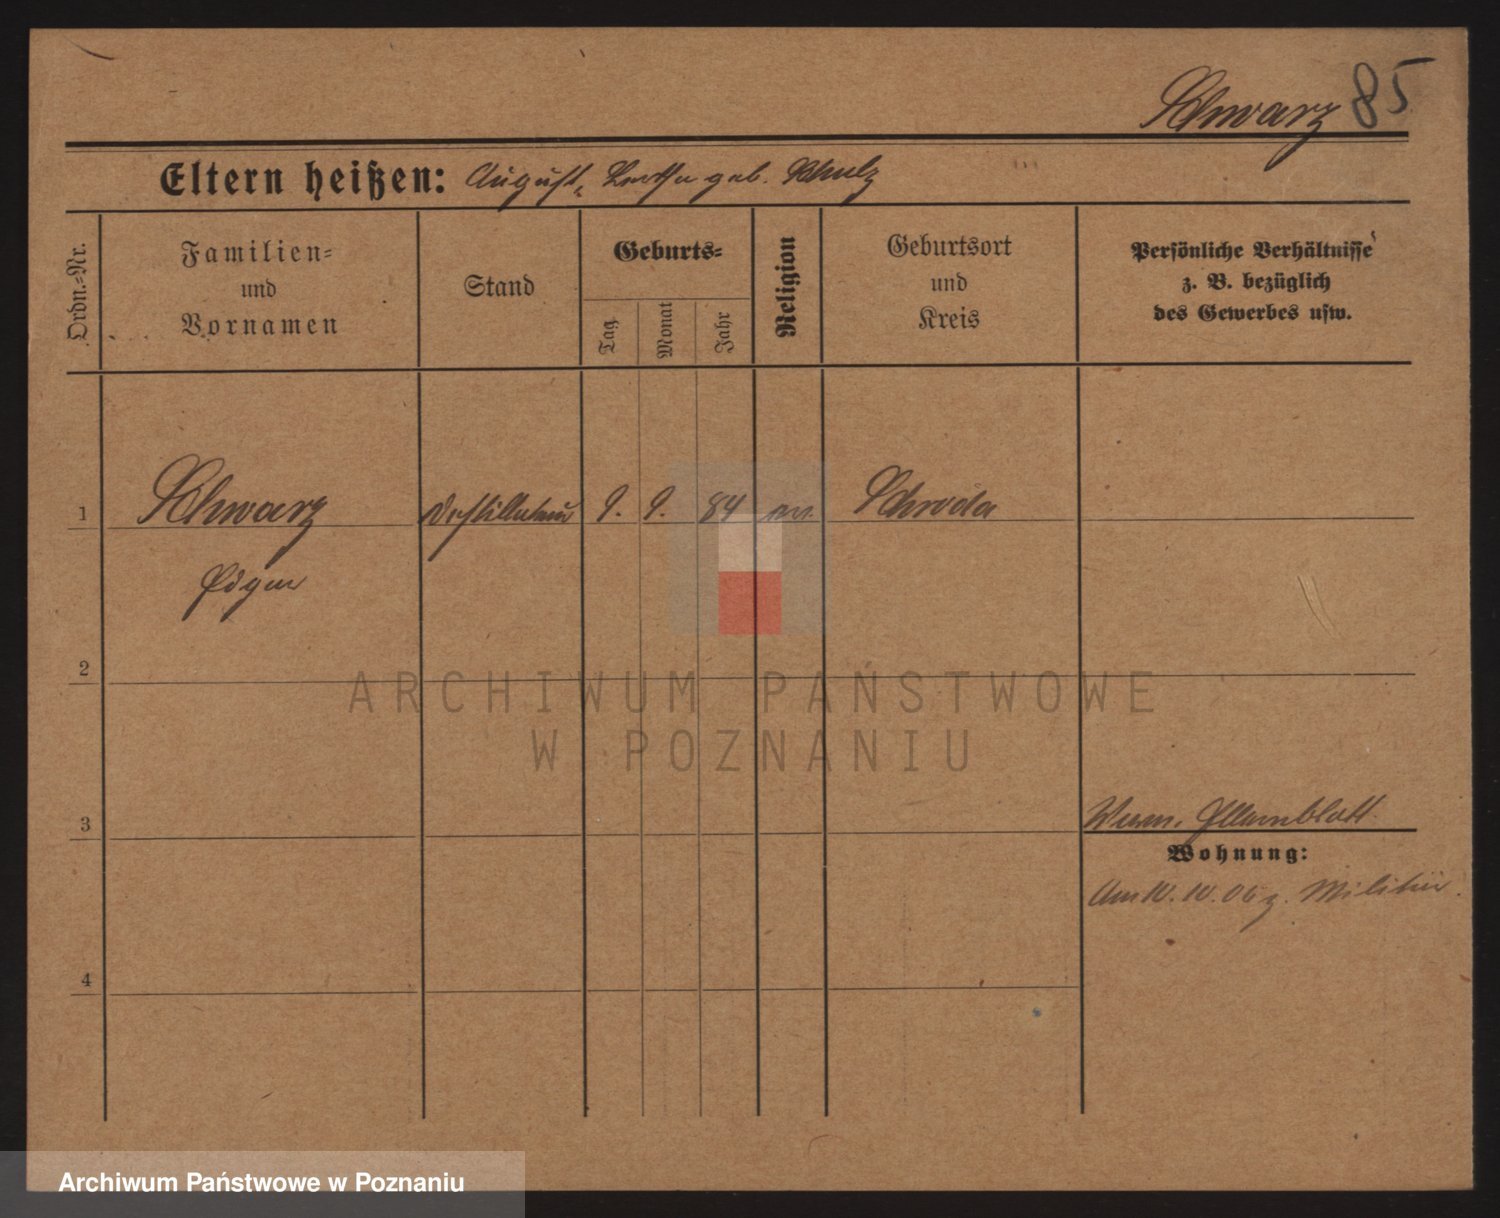 Schwarz 85
Eltern heißen: August, Bertha geb. Schulz
Ordn.-Nr.
Familien-
und
Vornamen
Stand
Geburts-
Tag
Monat
Jahr
Religion
Geburtsort
und
Kreis
Persönliche Verhältnisse
z. B. bezüglich
des Gewerbes usw.
1 Schwarz Destillateur 9. 9. 84 ev. Schroda
Edgar
2
ARCHIWUM PAŃSTWOWE
W POZNANIU
3
Wohnung:
Am 10. 10. 06 z. Militär.
4
Archiwum Państwowe w Poznaniu